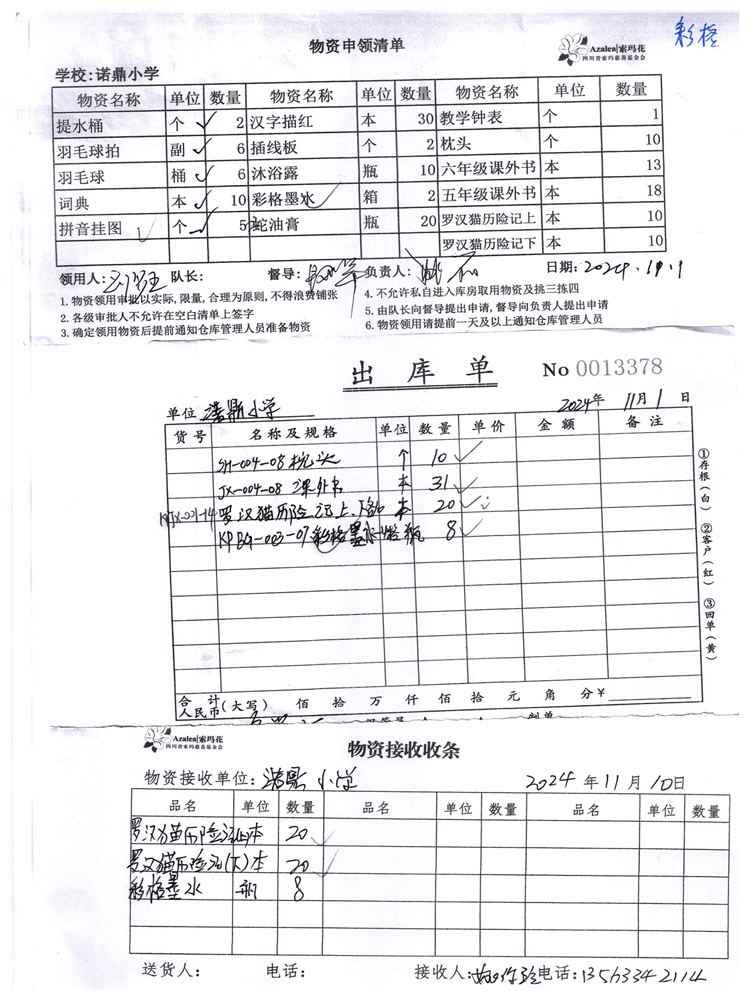 彩格
物资申领清单
Azalea|索玛花
四川省索玛慈善基金会
学校:诺鼎小学
物资名称 单位 数量 物资名称 单位 数量 物资名称 单位 数量
提水桶 个 2 汉字描红 本 30 教学钟表 个 1
羽毛球拍 副 6 插线板 个 2 枕头 个 10
羽毛球 桶 6 沐浴露 瓶 10 六年级课外书 本 13
词典 本 10 彩格墨水 箱 2 五年级课外书 本 18
拼音挂图 个 5 蛇油膏 瓶 20 罗汉猫历险记上 本 10
罗汉猫历险记下 本 10
领用人: 队长: 督导: 负责人: 日期: 2024.11.1
1.物资领用审批以实际,限量,合理为原则,不得浪费铺张
2.各级审批人不允许在空白清单上签字
3.确定领用物资后提前通知仓库管理人员准备物资
4.不允许私自进入库房取用物资及挑三拣四
5.由队长向督导提出申请,督导向负责人提出申请
6.物资领用请提前一天及以上通知仓库管理人员
出库单 No 0013378
单位 诺鼎小学 2024年 11月 1日
货号 名称及规格 单位 数量 单价 金额 备注
SH-004-08 枕头 个 10
JX-004-08 课外书 本 31
罗汉猫历险记上、下 本 20
KPBG-003-07 彩格墨水 瓶 8
①存根(白) ②客户(红) ③回单(黄)
合计人民币(大写) 佰 拾 万 仟 佰 拾 元 角 分 ¥
Azalea|索玛花
四川省索玛慈善基金会
物资接收收条
物资接收单位: 诺鼎小学 2024年11月10日
品名 单位 数量 品名 单位 数量 品名 单位 数量
罗汉猫历险记(上) 本 20
罗汉猫历险记(下) 本 20
彩格墨水 瓶 8
送货人: 电话: 接收人: 电话: 13563342114